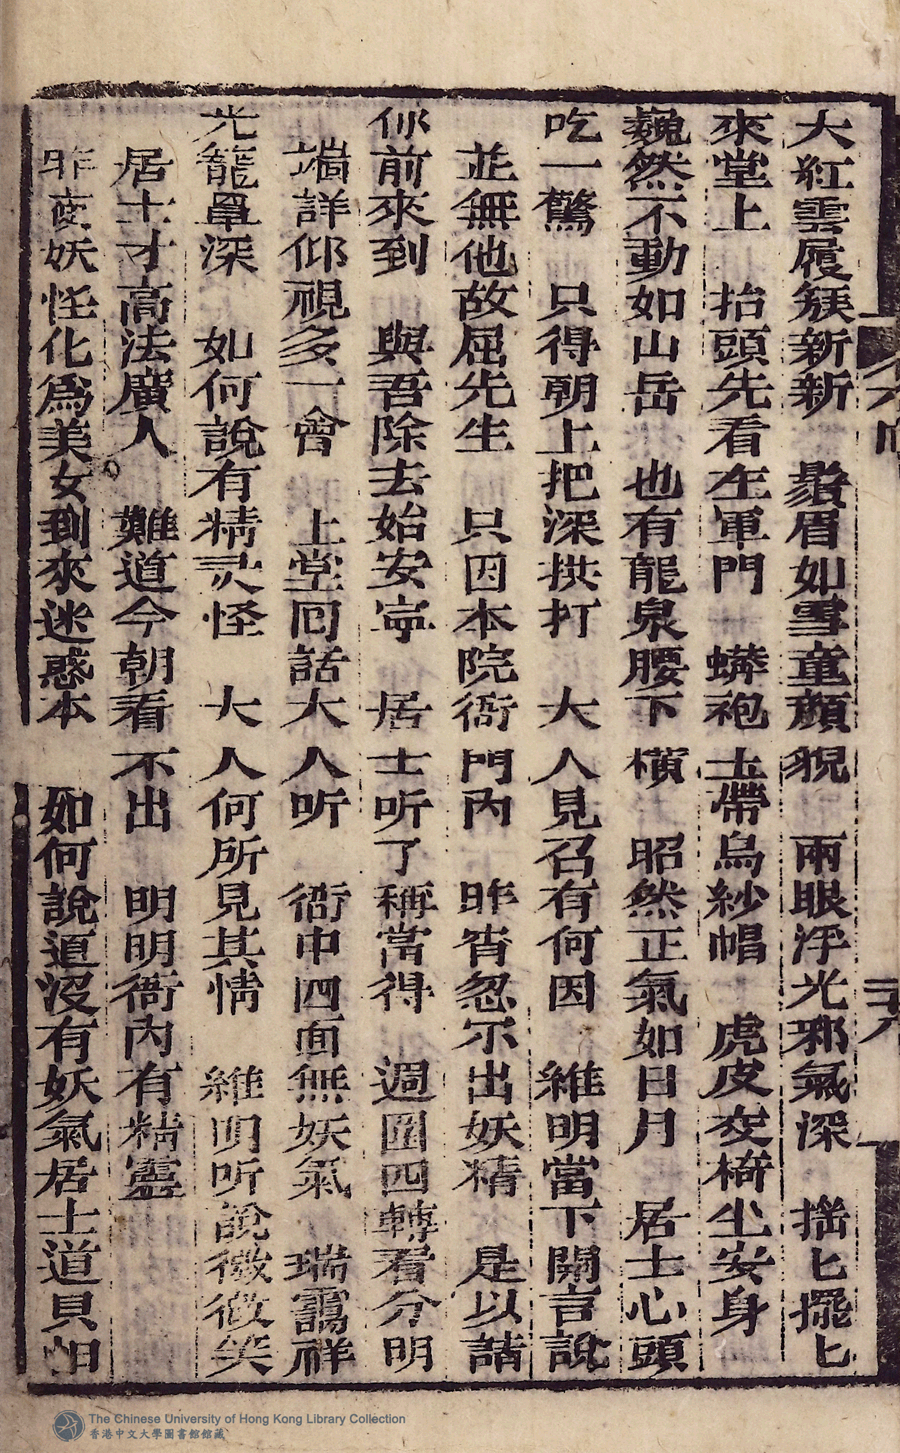 大紅雲履簇新新　鬍眉如雪童顏貌　兩眼浮光邪氣深　揺匕擺匕
來堂上　抬頭先看左軍門　蟒袍玉帶烏紗帽　虎皮交椅坐安身
巍然不動如山岳　也有龍泉腰下橫　昭然正氣如日月　居士心頭
吃一驚　只得朝上把深拱打　大人見召有何因　維明當下開言說
並無他故屈先生　只因本院衙門內　昨宵忽尓出妖精　是以請
你前來到　與吾除去始安寧　居士听了稱當得　週圍四轉看分明
端詳仰視多一會　上堂囘話大人听　衙中四面無妖氣　瑞靄祥
光籠罩深　如何說有精灵怪　大人何所見其情　維明听說微微笑
居士才高法廣人　難道今朝看不出　明明衙內有精靈
昨夜妖怪化爲美女到來迷惑本　如何說道沒有妖氣居士道貝
The Chinese University of Hong Kong Library Collection
香港中文大學圖書館館藏